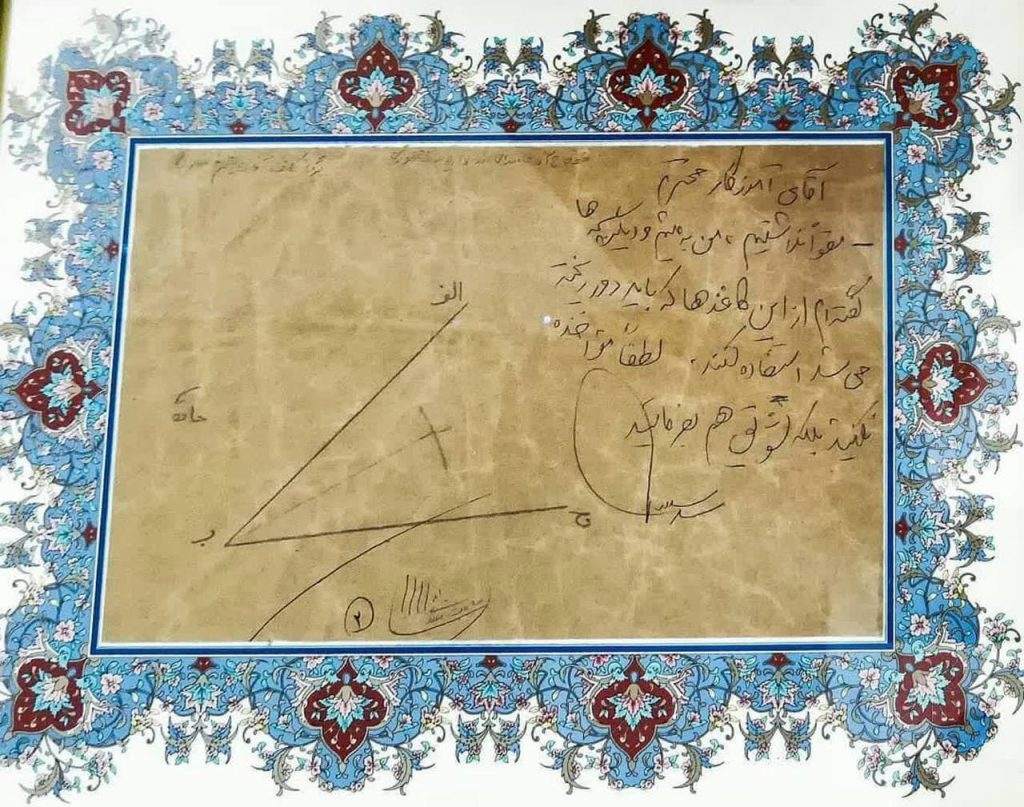 آقای آموزگار محترم
- مقوا نداشتیم، من به میثم و دیگر بچه ها
گفته‌ام از این کاغذها که باید دور ریخته
می شد استفاده کنند. لطفاً مؤاخذه
نکنید بلکه تشویق هم بفرمائید
الف
ب
ج
۲